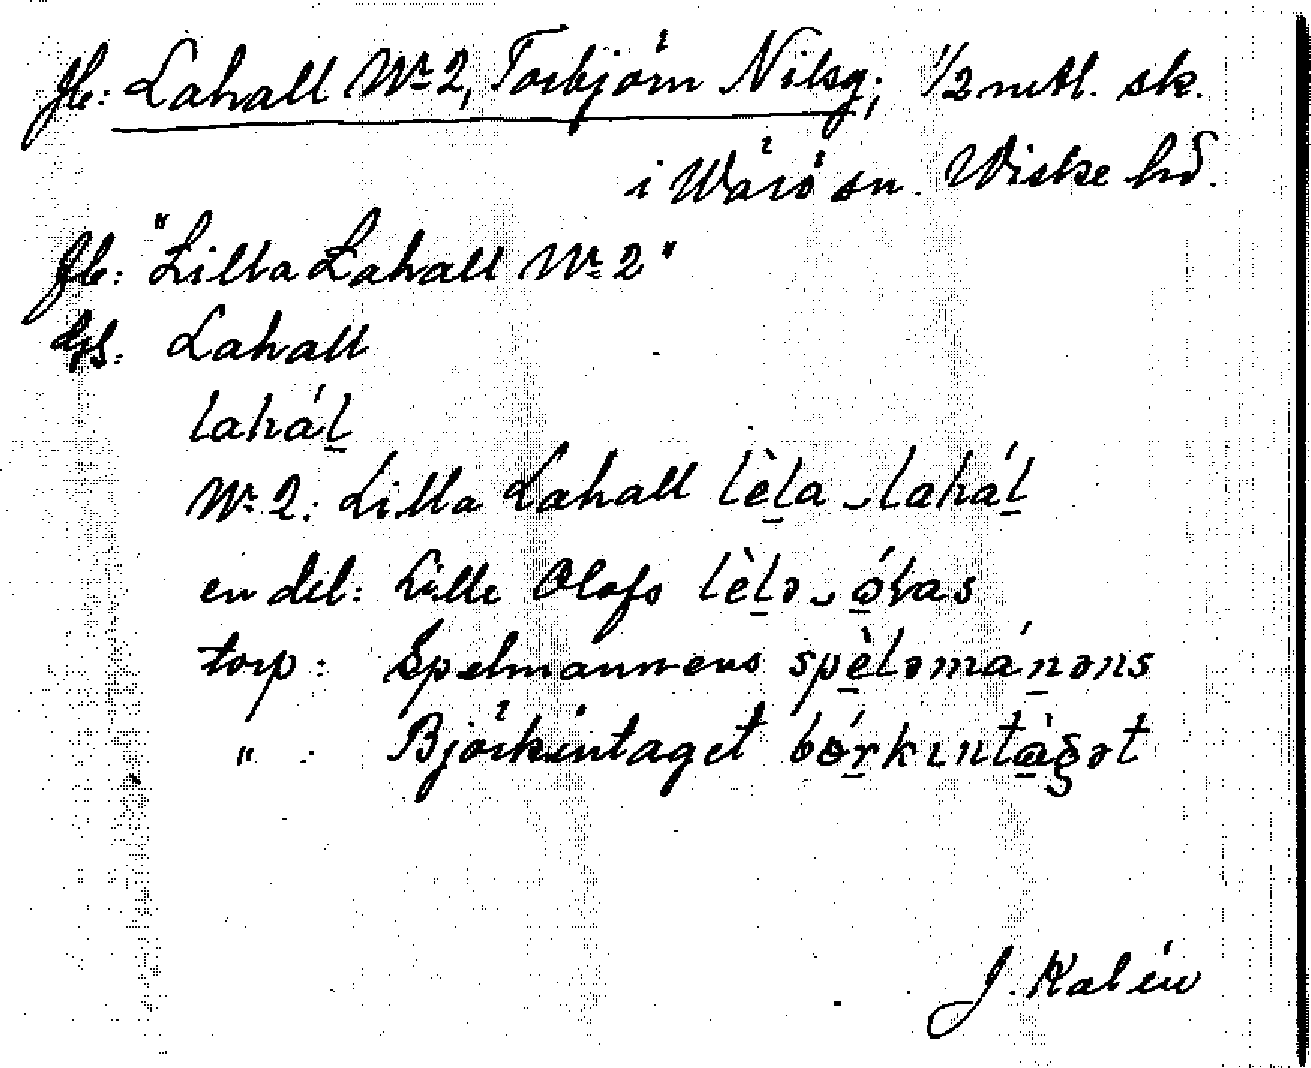 Jb: Lahall Nr 2, Torbjörn Nilsg; 1/2 mtl. sk.
i Wärö sn. Wiske hd.
Jb: "Lilla Lahall Nr 2"
Gs. Lahall
lahál̲
Nr 2: Lilla Lahall lèl̲a ‿lahál̲
en del: Lille Olofs lèl̲ə‿ó̲las
torp: Spelmannens spè̲ləmán̲əns
" : Björkintaget bɵ́r̲kɩntà̲gət
J. Kalén